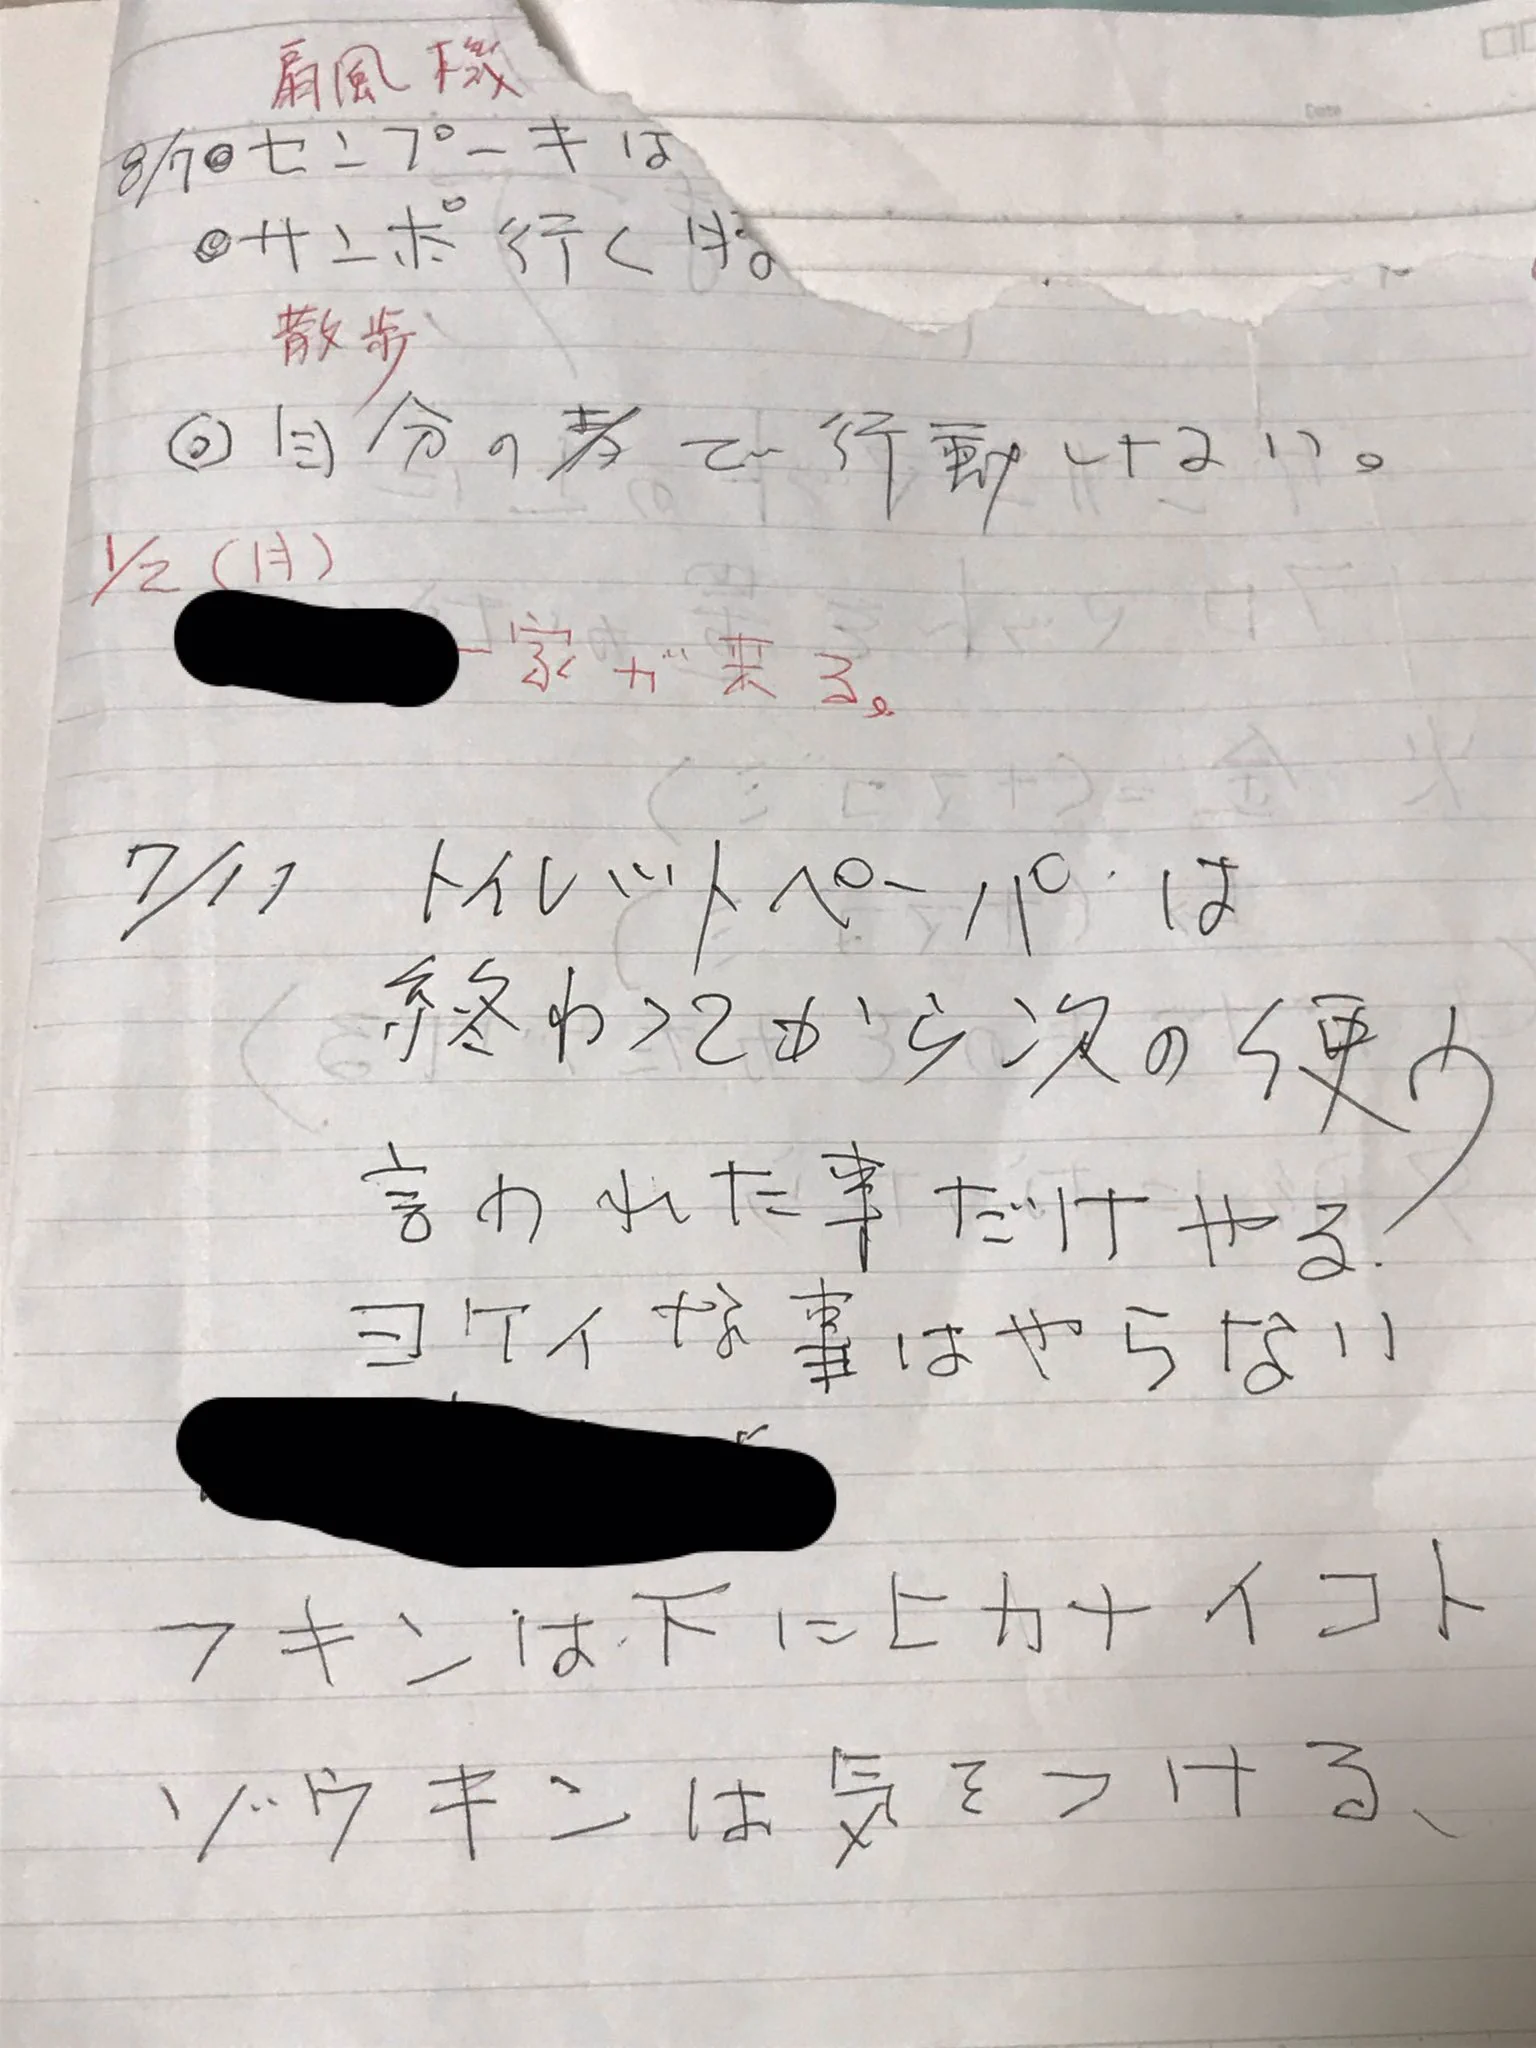 扇風機
8/7◎センプーキは
◎サンポ行く時。
散歩
◎自分の考で行動しない。
1/2(月)
一家が来る。
7/11 トイレットペーパーは
終わってから次の使う
言われた事だけやる.
ヨケイな事はやらない
フキンは下にヒカナイコト
ゾウキンは気をつける、